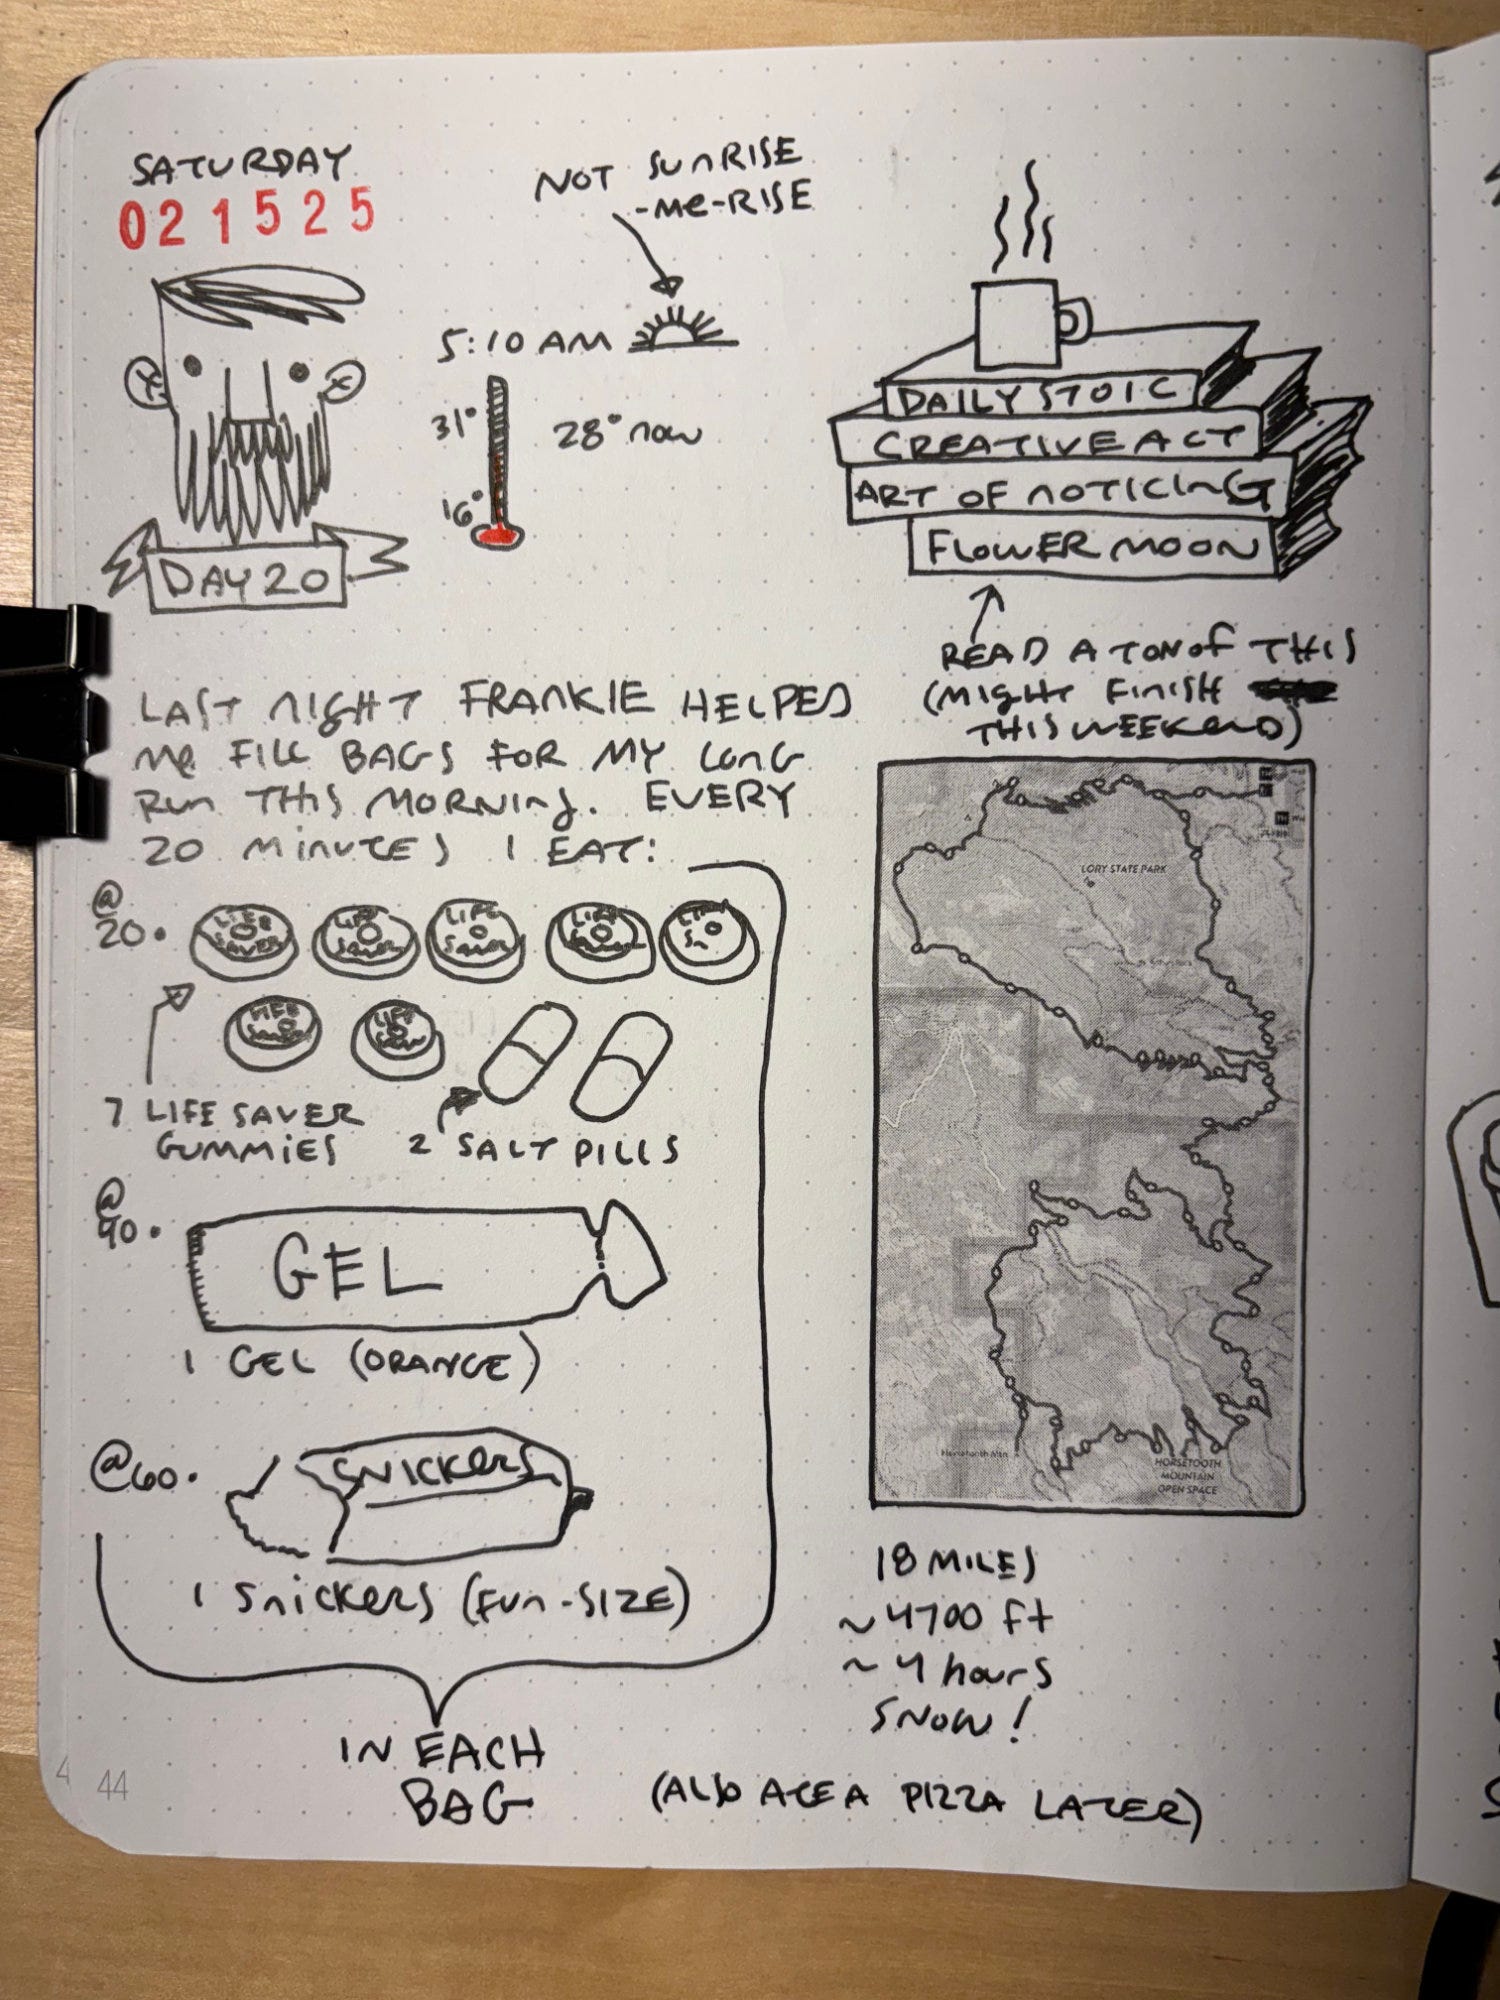 SATURDAY
021525
NOT SUNRISE
-ME-RISE
5:10 AM
31°
28° now
16°
DAY 20
DAILY STOIC
CREATIVE ACT
ART OF NOTICING
FLOWER MOON
READ A TON OF THIS
(MIGHT FINISH
THIS WEEKEND)
LAST NIGHT FRANKIE HELPED
ME FILL BAGS FOR MY LONG
RUN THIS MORNING. EVERY
20 MINUTES I EAT:
@
20.
LIFE
SAVER
LIFE
SAVER
LIFE
SAVER
LIFE
LIFE
SA
LIFE
SAVER
LIFE
SAVER
7 LIFE SAVER
GUMMIES
2 SALT PILLS
@
40.
GEL
1 GEL (ORANGE)
@60.
SNICKERS
1 SNICKERS (FUN-SIZE)
IN EACH
BAG
LORY STATE PARK
HORSETOOTH
MOUNTAIN
OPEN SPACE
18 MILES
~4700 ft
~4 hours
SNOW!
(ALSO ATE A PIZZA LATER)
44